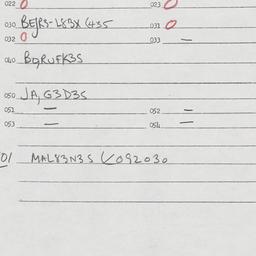 022 0 023 0
030 BEJR3-L83X (435 031 0
032 0 033 —
040 BQRUFK3S
050 JA, G3D3S
051 — 052 —
053 — 054 —
01 MAL83N3S (/092030